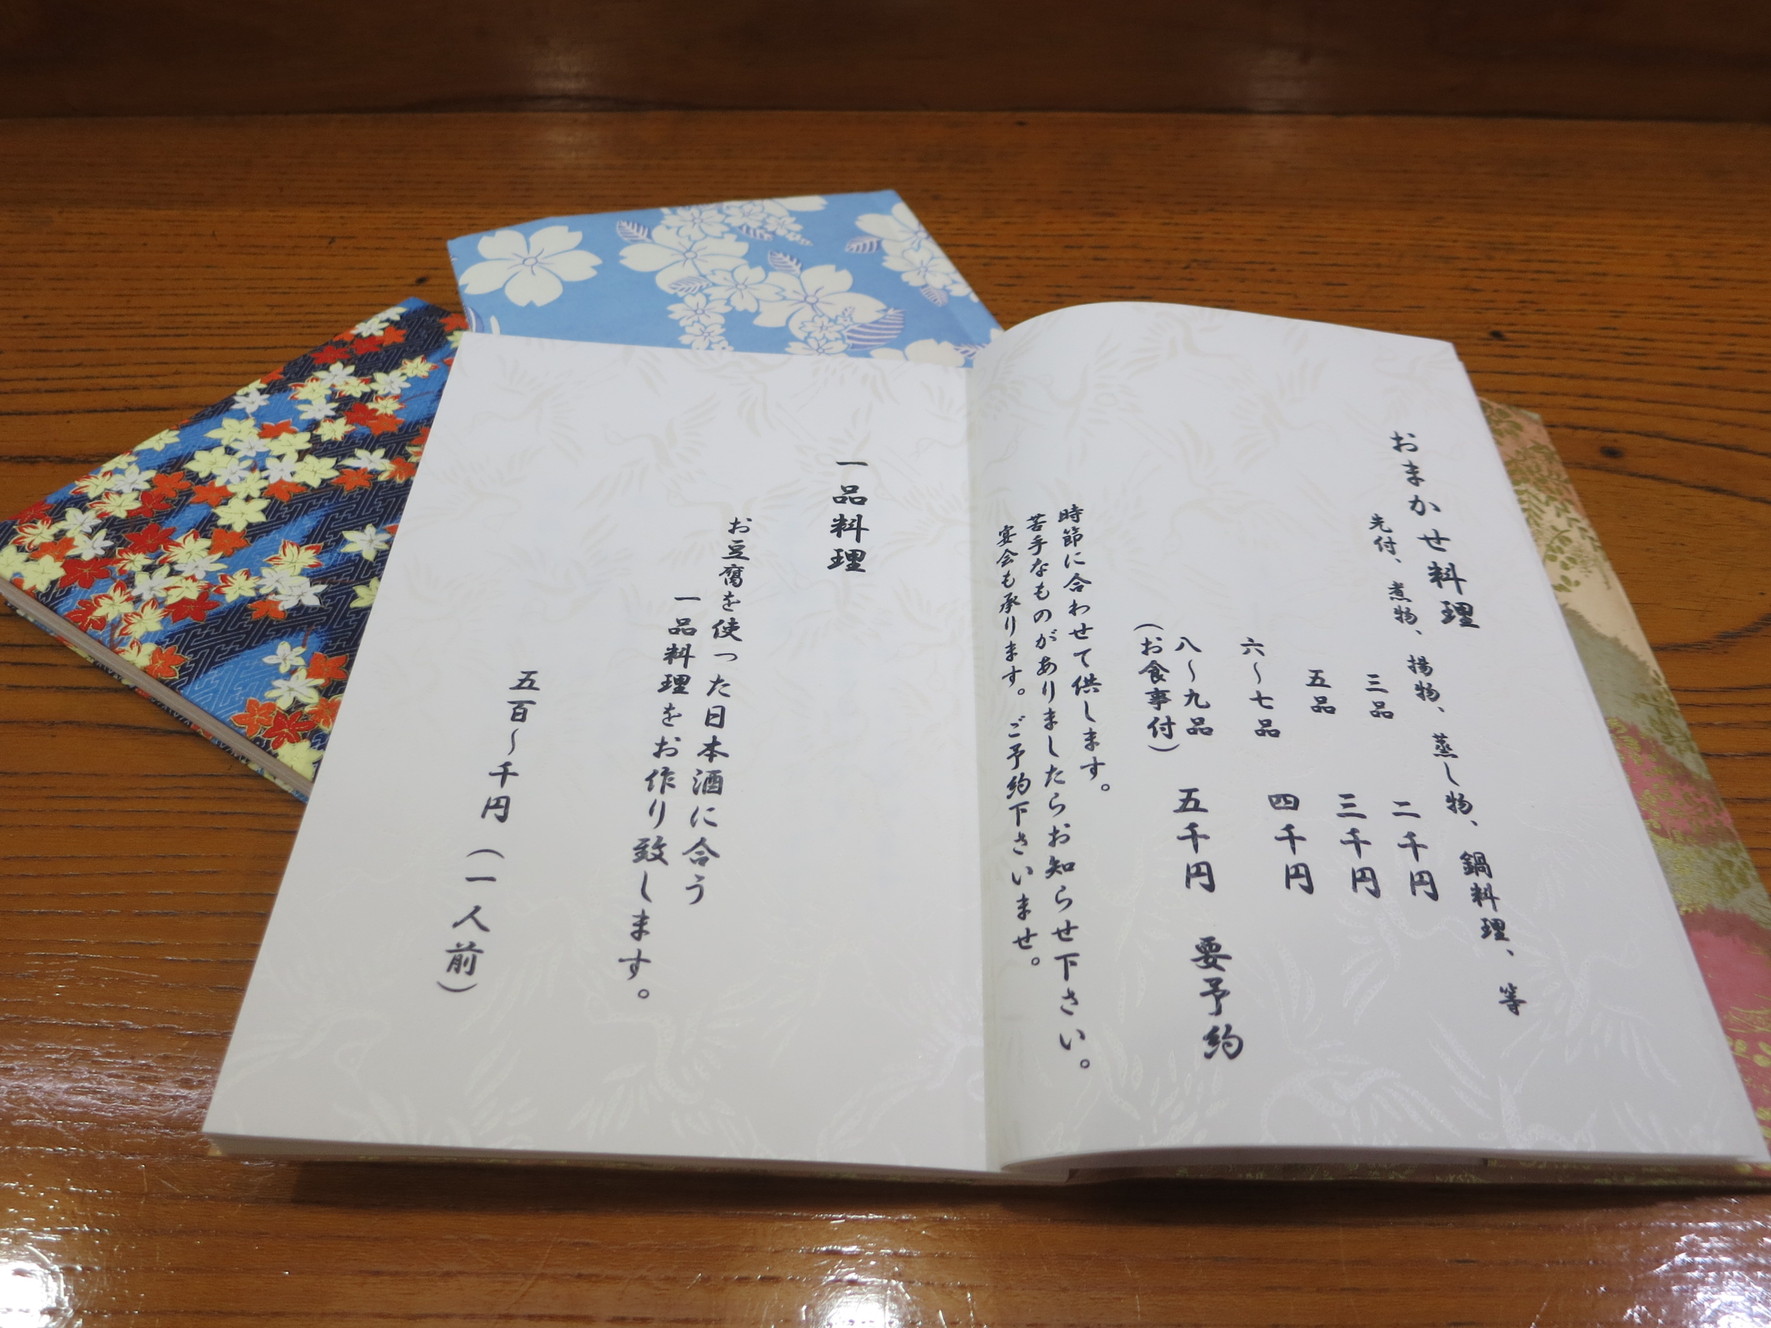 おまかせ料理
先付、煮物、揚物、蒸し物、鍋料理、等
三品 二千円
五品 三千円
六〜七品 四千円
八〜九品 五千円 要予約
（お食事付）
時節に合わせて供します。
苦手なものがありましたらお知らせ下さい。
宴会も承ります。ご予約下さいませ。
一品料理
お豆腐を使った日本酒に合う
一品料理をお作り致します。
五百〜千円（一人前）